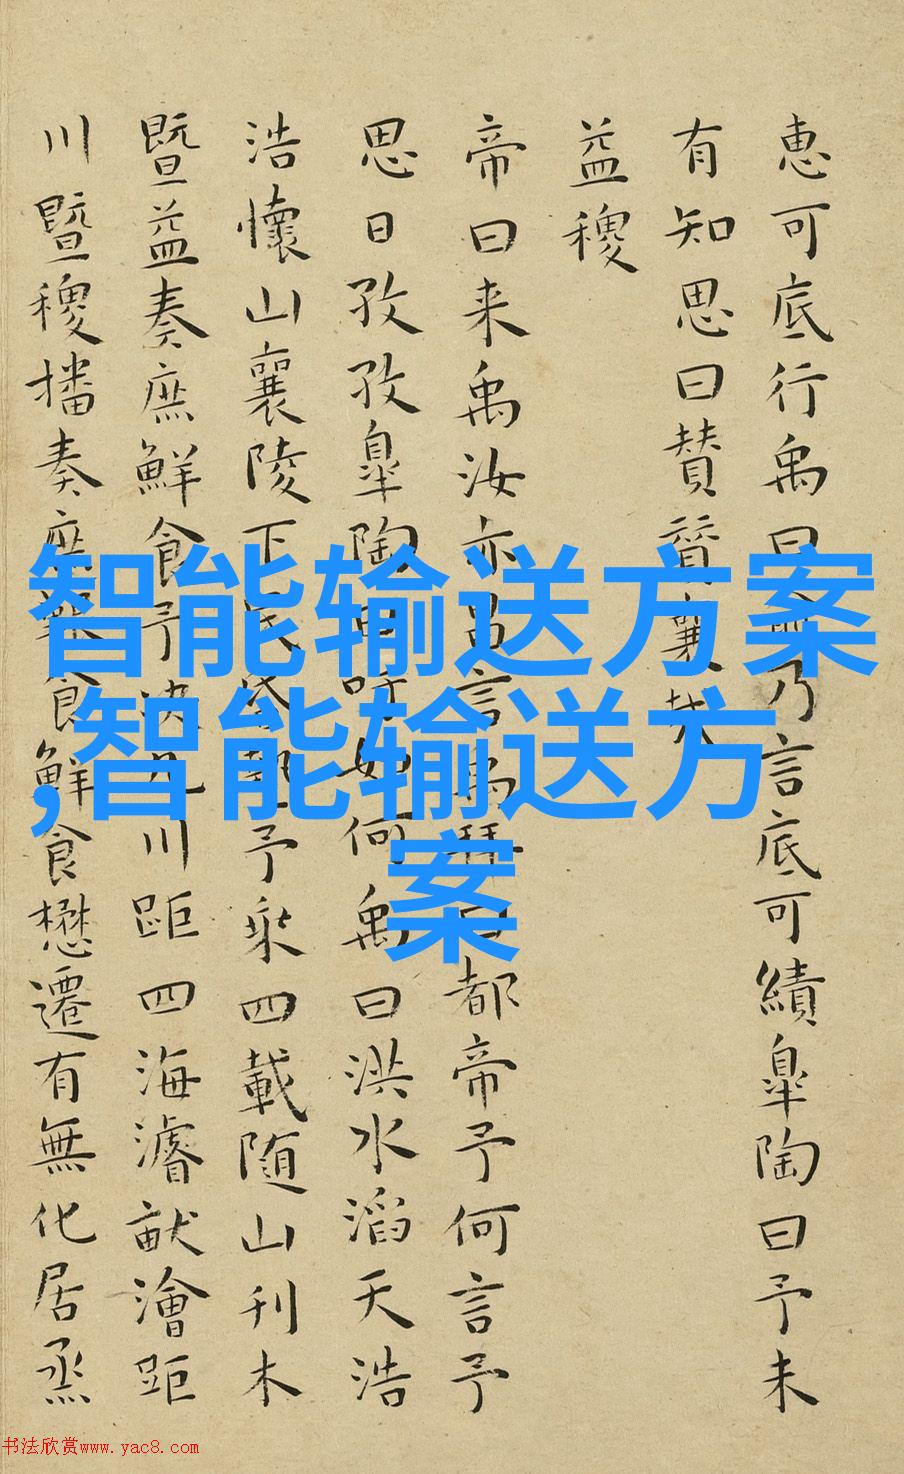 智能输送方案
,智能输送方
案
惠可底行禹曰乃言底可績皐陶曰予未
有知思曰賛賛襄哉
益稷
帝曰来禹汝亦昌言禹拜曰都帝予何言予
思日孜孜皐陶曰吁如何禹曰洪水滔天浩
浩懷山襄陵下民昏予乘四載随山刊木
暨益奏庶鮮食予决九川距四海濬畎澮距
川暨稷播奏庶艱食鮮食懋遷有無化居烝
书法欣赏www.yac8.com